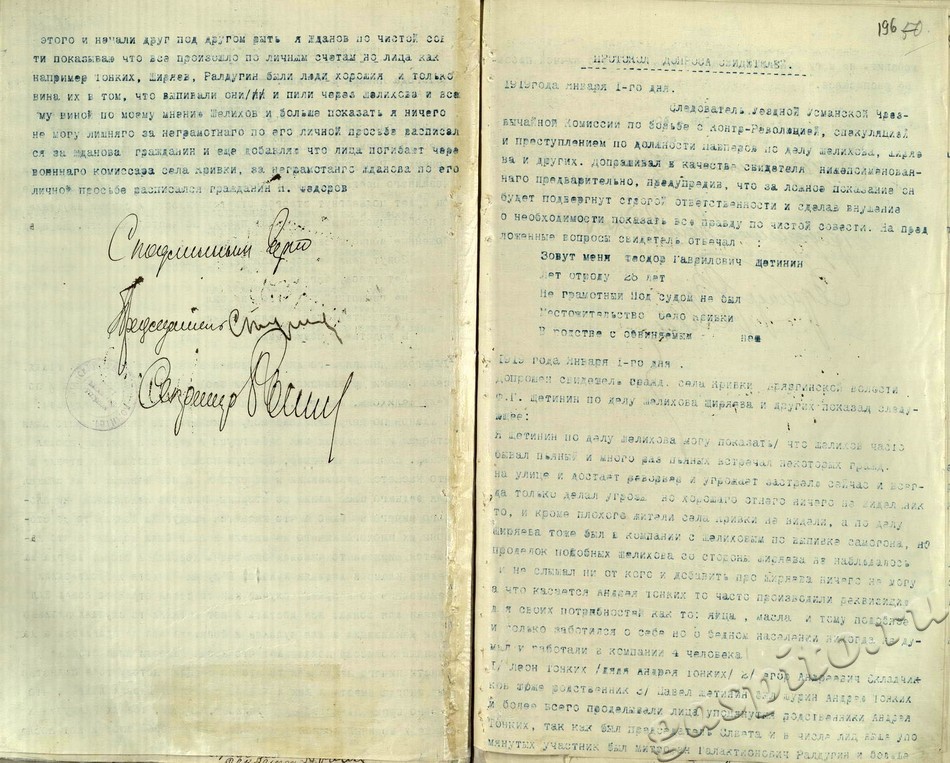 этого и начали друг под другом рыть я Жданов по чистой сов
ти показываю что все произошло по личным счетам но лица как
например Тонких, Ширяев, Ралдугин были люди хорошия и только
вина их в том, что выпивали они/// и пили через Шелихова и все
му виной по моему мнению Шелихов и больше показать я ничего
не могу лишняго за неграмотнаго по его личной просьбе расписал
ся за Жданова гражданин и еще добавляю что лица погибает чере
военнаго комиссара села Кривки, за неграмотнаго Жданова по его
личной просьбе расписался гражданин Федоров
С подлинным верно
Председатель
Секретарь
196
50
ПРОТОКОЛ ДОПРОСА СВИДЕТЕЛЕЙ.
1919года января 1-го дня.
Следователь уездной Усманской Чрез-
вычайной Комиссии по борьбе с Контр-Революцией, спекуляцией
и преступлением по должности по делу Шелихова, Ширяе
ва и других. Допрашивал в качестве свидетеля нижепоименован-
наго предварительно, предупредив, что за ложное показание он
будет подвергнут строгой ответственности и сделав внушение
о необходимости показать все правду по чистой совести. На пред
ложенные вопросы свидетель отвечал :
Зовут меня Феодор Гаврилович Щетинин
Лет отроду 25 лет
Не грамотный Под судом не был
Село Кривки
В родстве с обвиняемым
1919 года января 1-го дня .
Допрошен свидетель гражд. села Кривки волости
Ф.Г. Щетинин по делу Шелихова Ширяева и других показал следу-
ющее:
Я Щетинин по делу Шелихова могу показать/ что Шелихов часто
бывал пьяный и много раз пьяных встречая некоторых гражд.
на улице и достает револьвер и угрожает застрелю сейчас и всег-
да только делал угрозы но хорошаго ничего не видал ник
то, и кроме плохого жители села Кривки не видели, а по делу
Ширяева тоже был в компании с Шелиховым по выпивке самогона, но
проделок подобных Шелихова со стороны Ширяева не наблюдалось
и не слышал ни от кого и добавить про Ширяева ничего не могу
а что касается Андрея Тонких то часто производили реквизицию
для своих потребностей как то: яйца , масла и тому подобное
и только заботился о себе но о бедном населении никогда не ду-
мал и работали в компании 4 человека
1/ Леон Тонких /дядя Андрея Тонких/ 2/ Егор Андреевич Складчи-
ков тоже родственник 3/ Павел Щетинин шурин Андрея Тонких
и более всего проделывали лица упомянутыя родственники Андрея
Тонких, так как был председатель Совета и в числе лиц выше упо
мянутых участник был Галактионович Ралдугин и больше
easvitov.ru